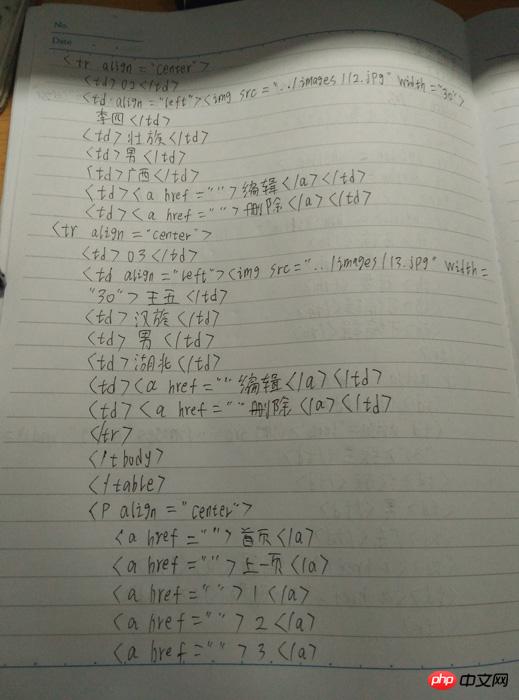 No.
Date
<tr align = "center">
<td> 02 </td>
<td align = "left"><img src = "../images/12.jpg" width = "30">
李四 </td>
<td> 壮族 </td>
<td> 男 </td>
<td> 广西 </td>
<td> <a href = ""> 编辑 </a> </td>
<td> <a href = ""> 删除 </a> </td>
<tr align = "center">
<td> 03 </td>
<td align = "left"><img src = "../images/13.jpg" width =
"30"> 王五 </td>
<td> 汉族 </td>
<td> 男 </td>
<td> 湖北 </td>
<td> <a href = "" 编辑 </a> </td>
<td> <a href = "" 删除 </a> </td>
</tr>
</tbody>
</table>
<P align = "center">
<a href = ""> 首页 </a>
<a href = ""> 上一页 </a>
<a href = ""> 1 </a>
<a href = ""> 2 </a>
<a href = ""> 3 </a>
php 中文网